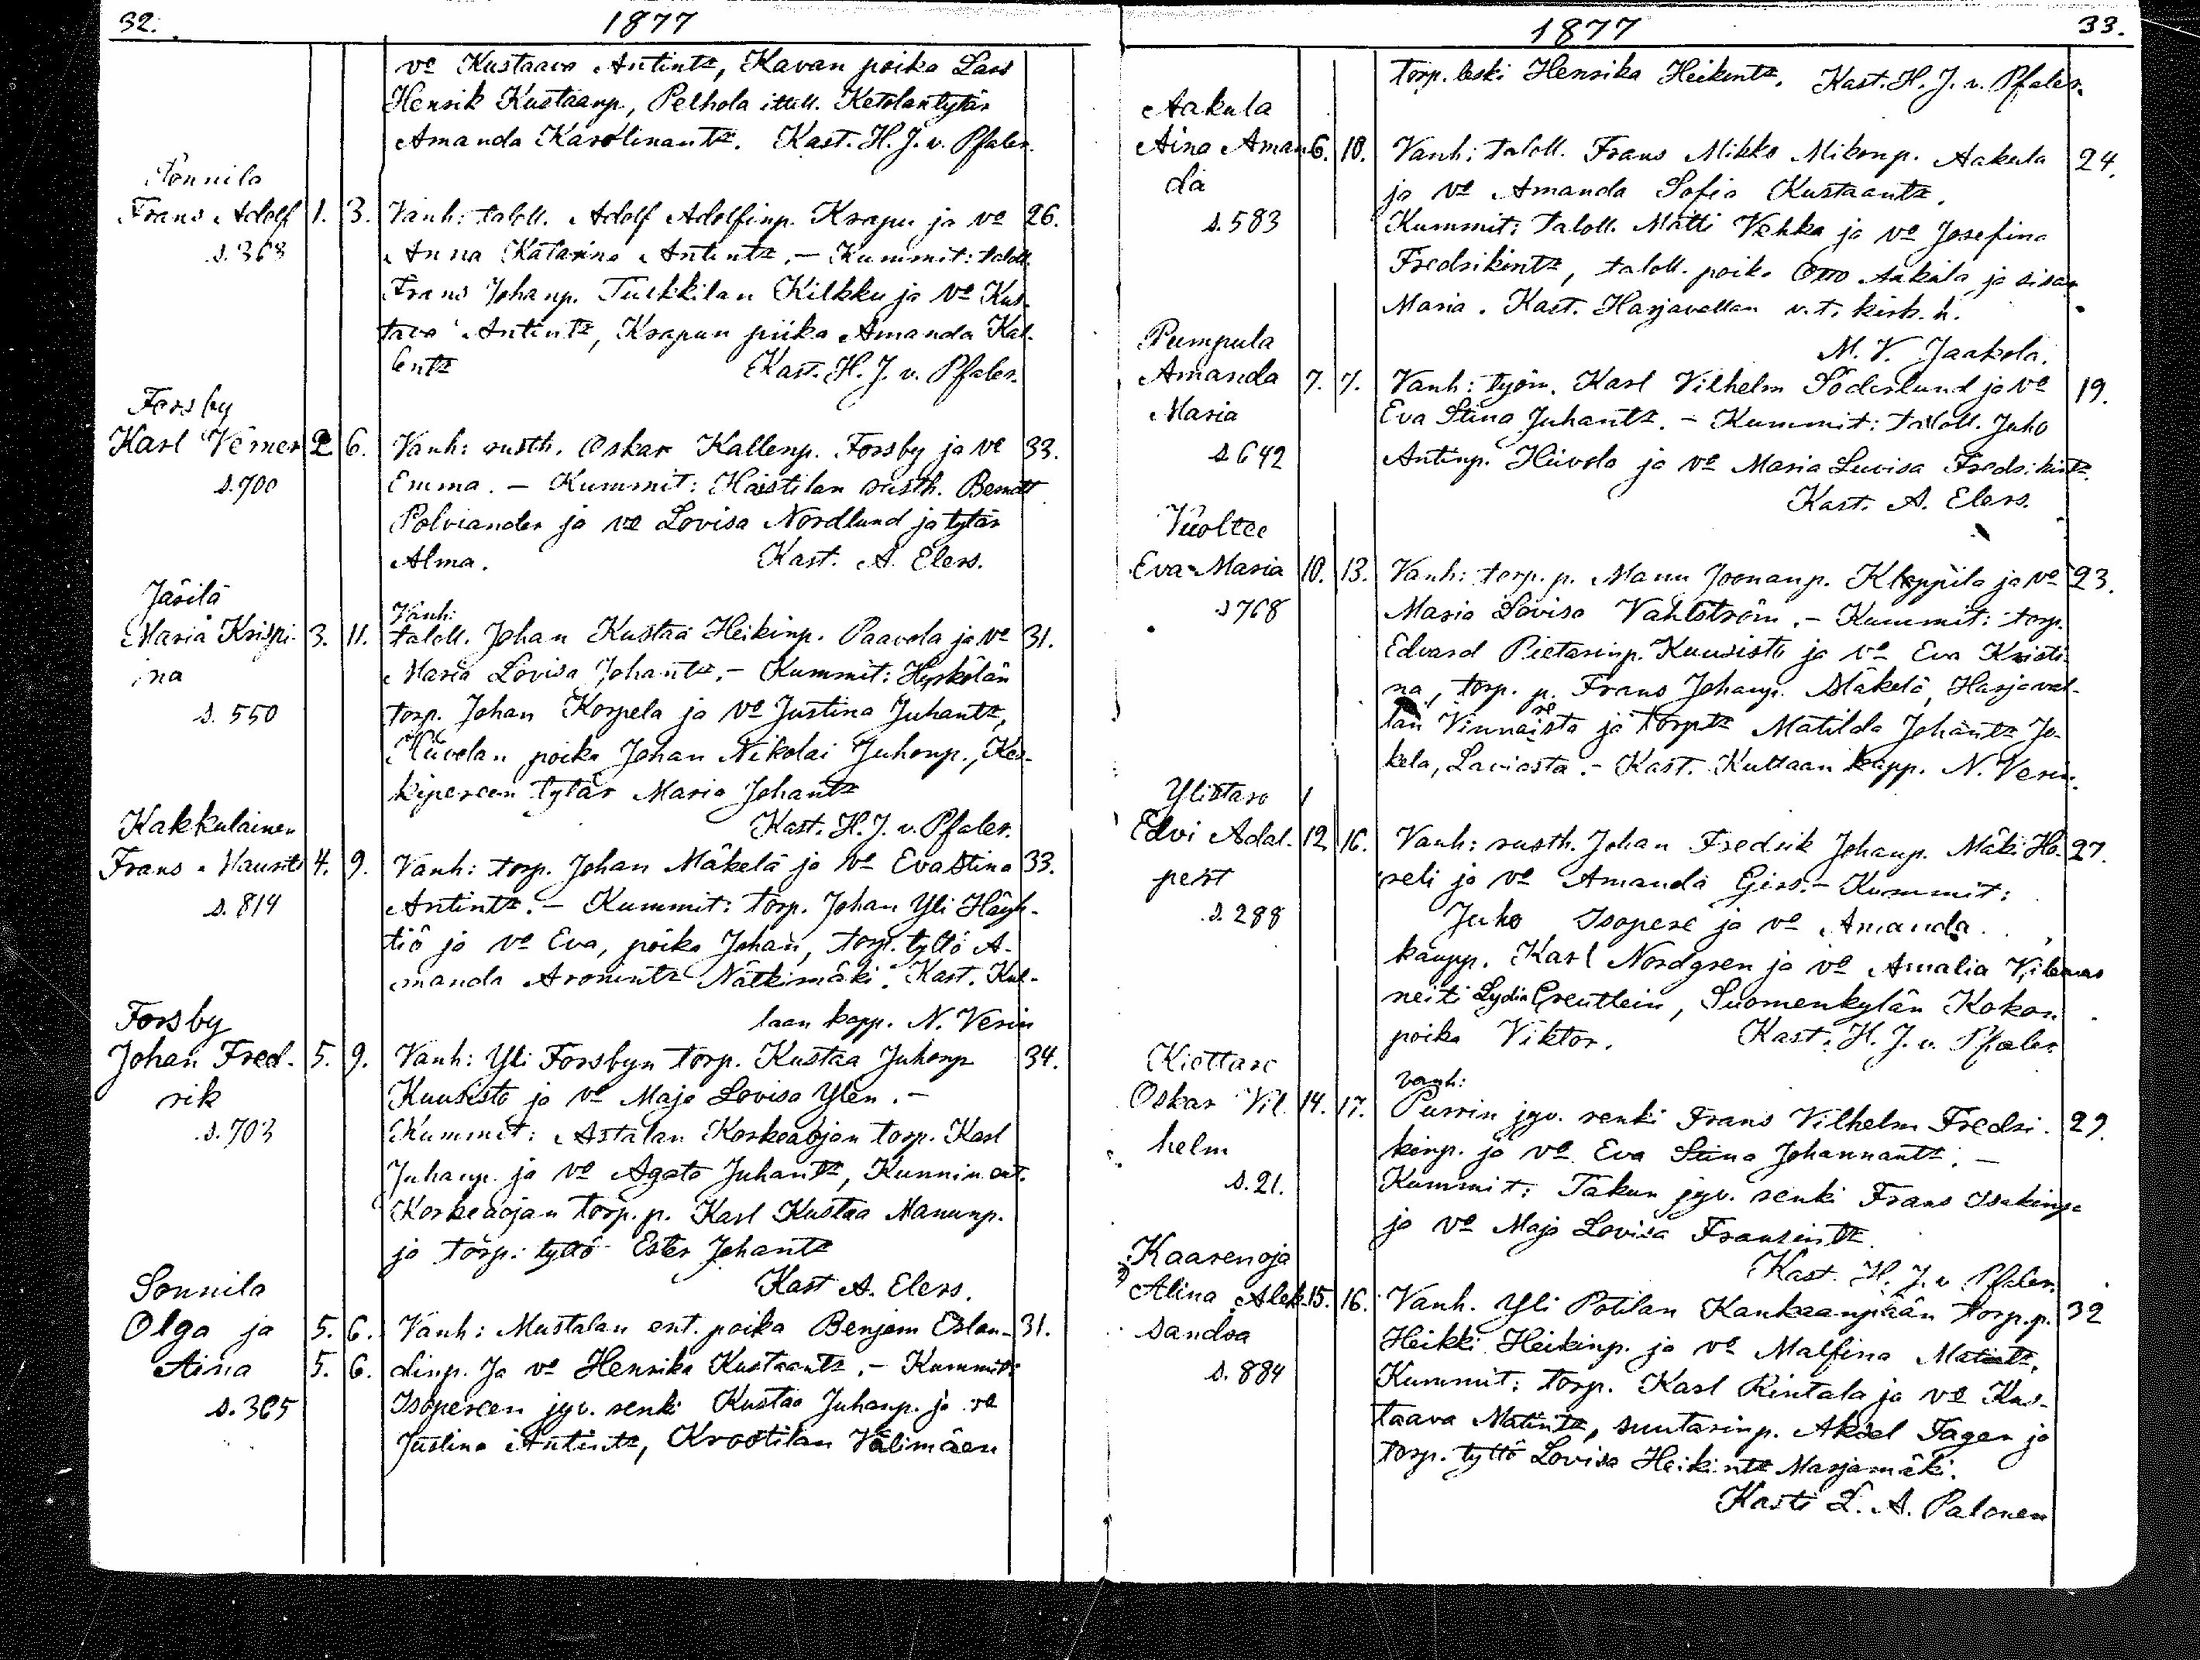 32.
1877
vo Kustaava Antintr, Kavan poika Lars
Henrik Kustaanp, Pelhola ittell. Ketolantytär
Amanda Karolinantr. Kast. H. J. v. Pfaler.
Sonnila
Frans Adolf 1. 3. Vanh: taloll. Adolf Adolfinp. Krapu ja vo 26.
s. 363 Anna Katarina Antintr. – Kummit: taloll.
Frans Johanp. Turkkilan Kilkku ja vo Kus-
tava Antintr, Krapun piika Amanda Kal-
lentr Kast. H. J. v. Pfaler.
Forsby
Karl Verner 2. 6. Vanh: rusth. Oskar Kallenp. Forsby ja vo 33.
s. 700 Emma. – Kummit: Haistilan rusth. Berndt
Polviander ja vo Lovisa Nordlund ja tytär
Alma. Kast. A. Elers.
Järilä
Vanh:
Maria Kristi- 3. 11. taloll. Johan Kustaa Heikinp. Paavola ja vo 31.
ina Maria Lovisa Johantr. – Kummit: Hyrkölän
s. 550 torp. Johan Korpela ja vo Justina Juhantr,
Hiivolan poika Johan Nikolai Juhonp., Kes-
kipereen tytär Maria Johantr
Kast. H. J. v. Pfaler.
Kakkulainen
Frans Maurits 4. 9. Vanh: torp. Johan Mäkelä ja vo Eva Stina 33.
s. 814 Antintr. – Kummit: torp. Johan Yli Häyh-
tiö ja vo Eva, poika Johan, torp. tyttö A-
manda Aronintr Nätkinmäki. Kast. Kul-
laan kapp. N. Verin
Forsby
Johan Fred- 5. 9. Vanh: Yli Forsbyn torp. Kustaa Juhonp 34.
rik Kuusisto ja vo Maja Lovisa Ylen. –
s. 703 Kummit: Astalan Korkeaojan torp. Karl
Juhanp. ja vo Agata Juhantr, Kunnin ent.
Korkeaojan torp. p. Karl Kustaa Manunp.
ja torp. tyttö Ester Johantr
Kast A. Elers.
Sonnila
Olga ja 5. 6. Vanh: Mustalan ent. poika Benjam Erlan- 31.
Aina 5. 6. dinp. Ja vo Henrika Kustaantr. – Kummit:
s. 365 Isopereen jyv. renki Kustaa Juhanp. ja vo
Justina Antintr, Krootilan Välimäen
1877
33.
torp. leski Henrika Heikintr. Kast. H. J. v. Pfaler.
Aakula
Aina Aman- 6. 10. Vanh: taloll. Frans Mikko Mikonp. Aakula 24.
da ja vo Amanda Sofia Kustaantr.
s. 583 Kummit: taloll. Matti Vehka ja vo Josefina
Fredrikintr, taloll. poika Otto Aakula ja sisar
Maria. Kast. Harjavallan v.t. kirkh.
M. V. Jaakola.
Pumpula
Amanda 7. 7. Vanh: työm. Karl Vilhelm Söderlund ja vo 19.
Maria Eva Stina Juhantr. – Kummit: taloll. Juho
s 642 Antinp. Hiivola ja vo Maria Lovisa Fredrikintr.
Kast. A. Elers.
Vuoltee
Eva Maria 10. 13. Vanh: torp. p. Manu Joonanp. Kleppila ja vo 23.
s 768 Maria Lovisa Vahlström. – Kummit: torp.
Edvard Pietarinp. Kuusisto ja vo Eva Kristi-
na, torp. p. Frans Johanp. Mäkelä, Harjaval-
lan Vinnaresta ja torptr Matilda Johantr Jo-
kela, Laviasta. – Kast. Kullaan kapp. N. Verin.
Ylistaro
Edvi Adal- 12. 16. Vanh: rusth. Johan Fredrik Johanp. Mäki Ha- 27.
pert reli ja vo Amanda Girs. – Kummit:
s. 288 Juho Isopere ja vo Amanda
kaupp. Karl Nordgren ja vo Amalia
neiti Lydia, Suomenkylän Kokon
poika Viktor. Kast. H. J. v. Pfaler
Kiettare
vanh:
Oskar Vil- 14. 17. Purrin jyv. renki Frans Vilhelm Fredri- 29.
helm kinp. ja vo Eva Stina Johannantr. –
s. 21. Kummit: Takun jyv. renki Frans Isakinp.
ja vo Maja Lovisa Fransintr.
Kast. H. J. v Pfaler.
Kaarenoja
Alina Alek- 15. 16. Vanh. Yli Potilan Kankaanpään torp. p. 32
sandra Heikki Heikinp. ja vo Malfina Matintr.
s. 884 Kummit: torp. Karl Rintala ja vo Kus-
taava Matintr, suutarinp. Aksel Fager ja
torp. tyttö Lovisa Heikintr Marjamäki.
Kasti L. A. Palonen